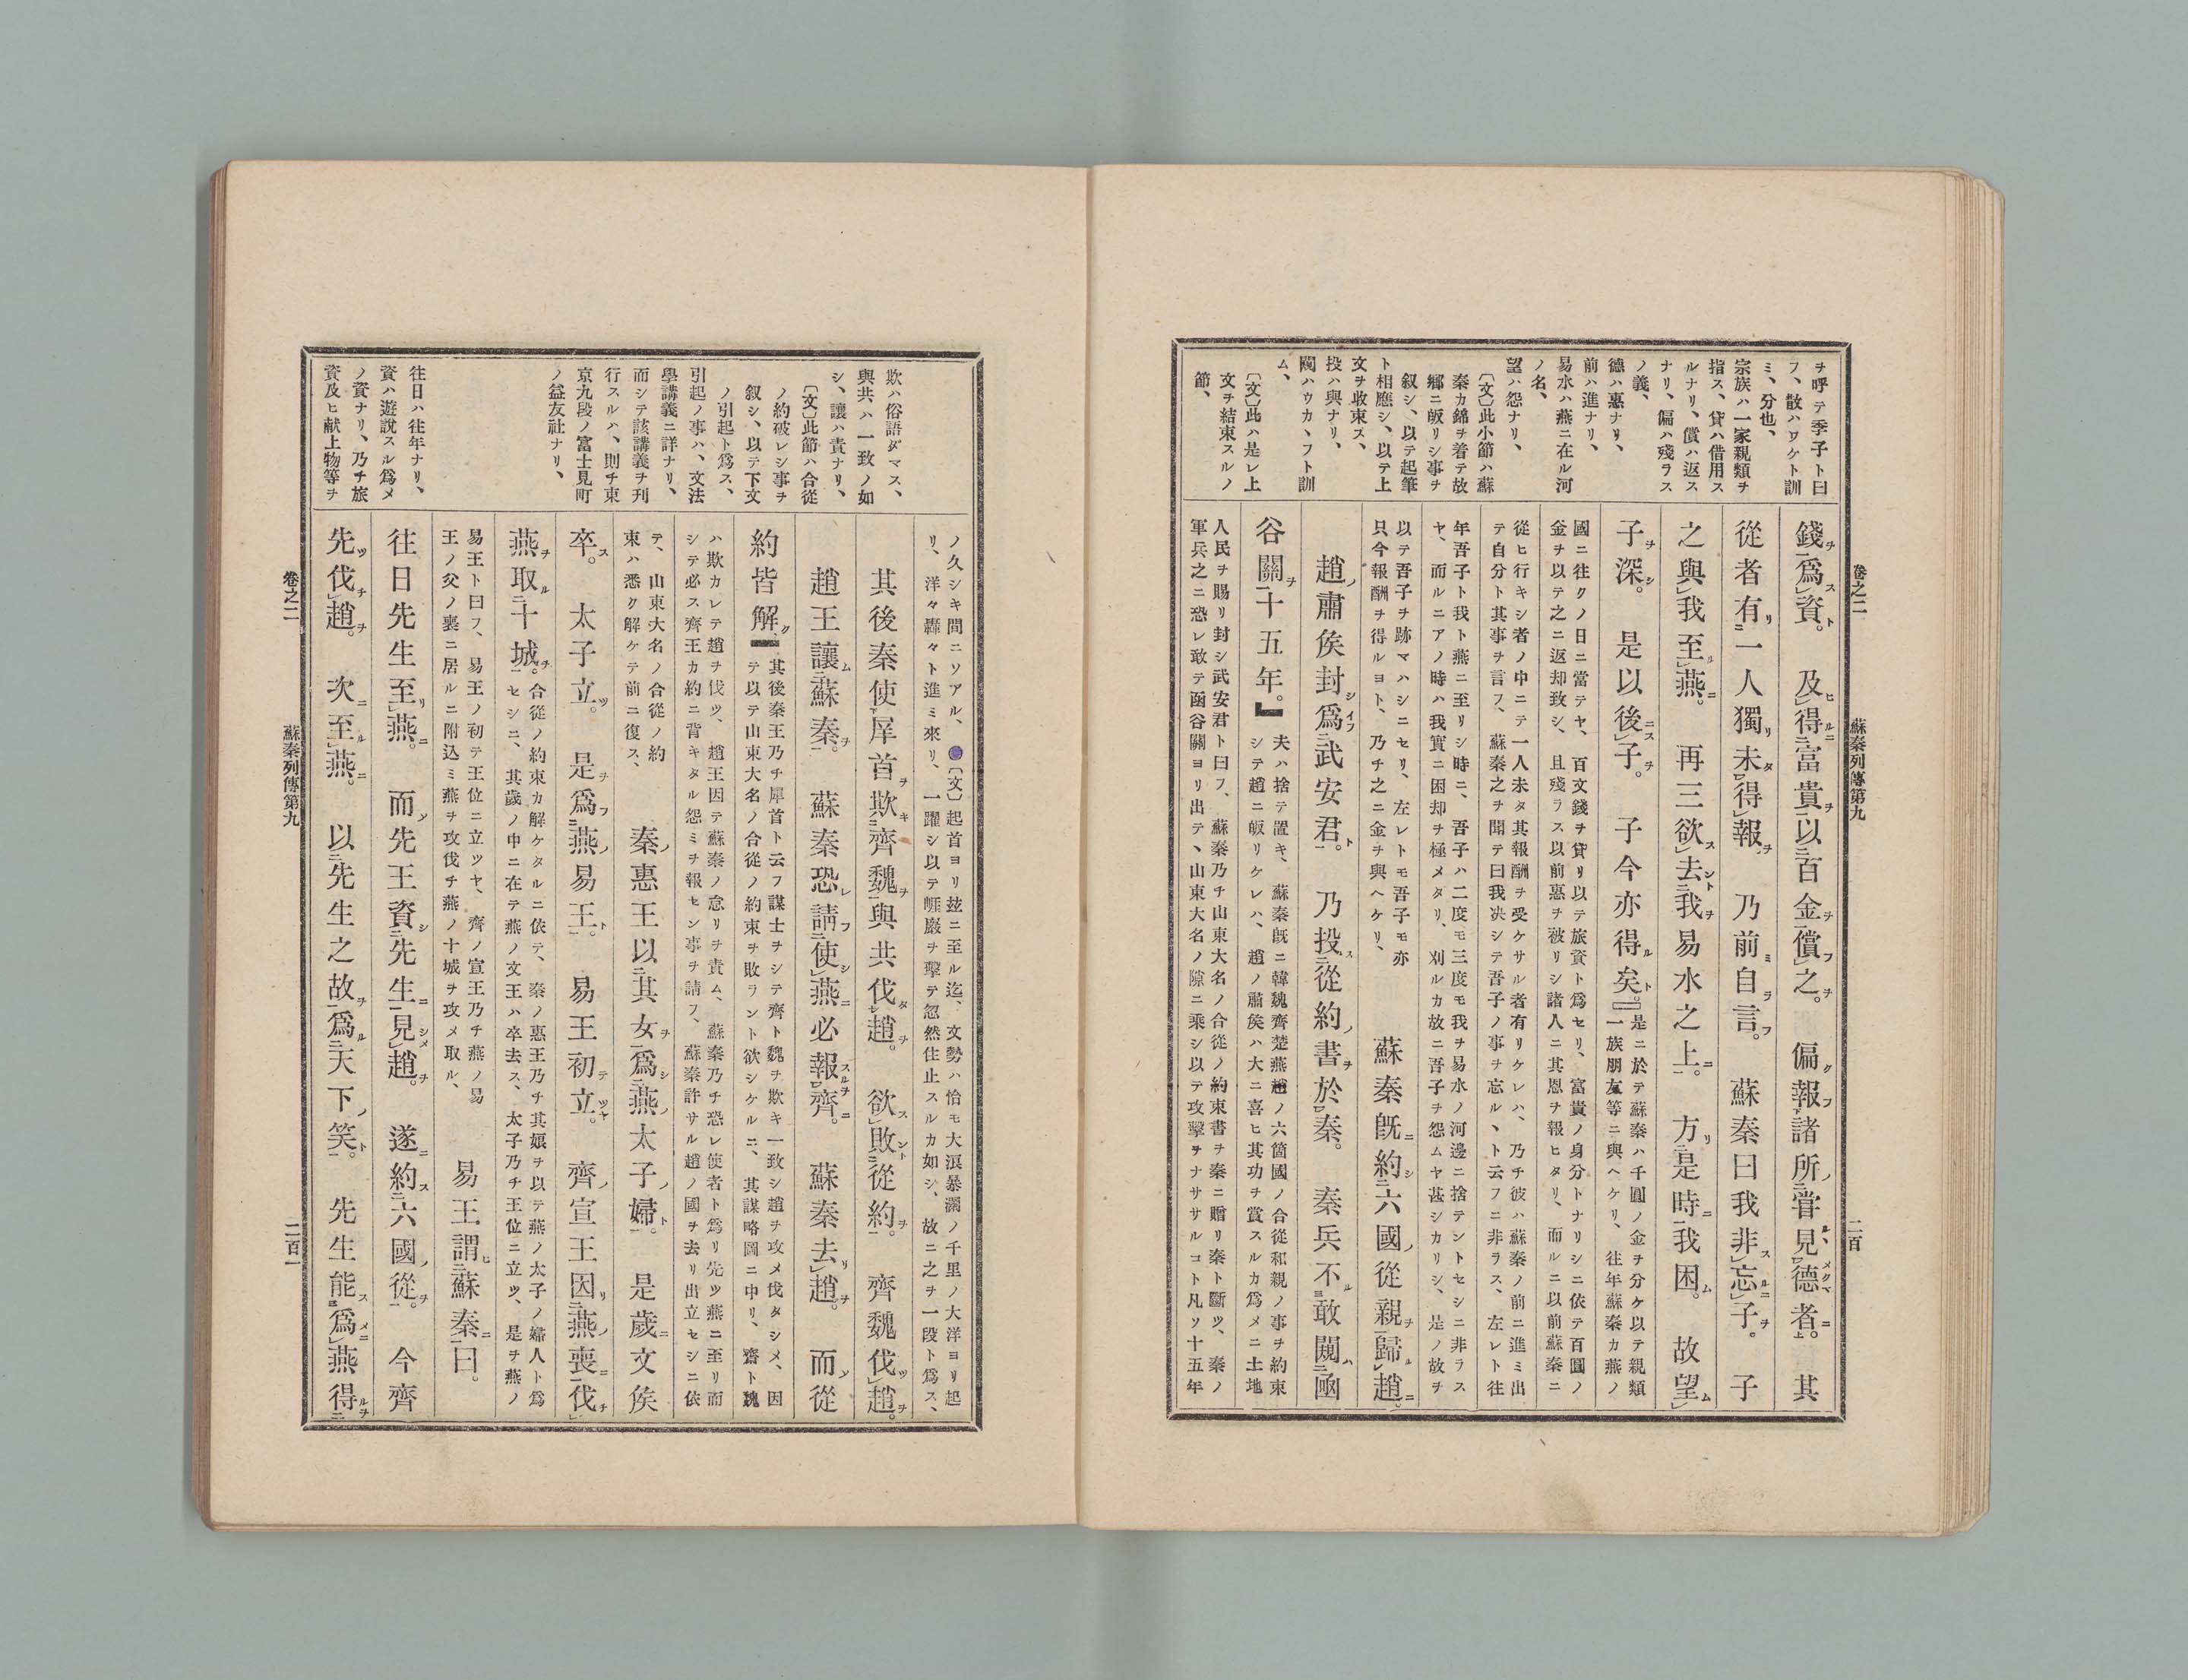 ヲ呼テ季子ト曰
フ、散ハワケト訓
ミ、分也、
宗族ハ一家親類ヲ
指ス、貸ハ借用ス
ルナリ、償ハ返ス
ナリ、偏ハ殘ラス
ノ義、
德ハ惠ナリ、
前ハ進ナリ、
易水ハ燕ニ在ル河
ノ名、
望ハ怨ナリ、
〔文〕此小節ハ蘇
秦カ錦ヲ着テ故
鄕ニ皈リシ事ヲ
叙シ、以テ起筆
ト相應シ、以テ上
文ヲ收束ス、
投ハ與ナリ、
闚ハウカヽフト訓
ム、
〔文〕此ハ是レ上
文ヲ結束スルノ
節、
卷之二　蘇秦列傳第九　二百
錢爲資。及得富貴以百金償之。偏報諸所嘗見德者。其
從者有一人獨未得報。乃前自言。蘇秦曰我非忘子。子
之與我至燕。再三欲去我易水之上。方是時我困。故望
子深。是以後子。子今亦得矣。
是ニ於テ蘇秦ハ千圓ノ金ヲ分ケ以テ親類
一族朋友等ニ與ヘケリ、往年蘇秦カ燕ノ
國ニ往クノ日ニ當テヤ、百文錢ヲ貸リ以テ旅資ト爲セリ、富貴ノ身分トナリシニ依テ百圓ノ
金ヲ以テ之ニ返却致シ、且殘ラス以前惠ヲ被リシ諸人ニ其恩ヲ報ヒタリ、而ルニ以前蘇秦ニ
從ヒ行キシ者ノ中ニテ一人未タ其報酬ヲ受ケサル者有リケレハ、乃チ彼ハ蘇秦ノ前ニ進ミ出
テ自分ト其事ヲ言フ、蘇秦之ヲ聞テ曰我決シテ吾子ノ事ヲ忘ルヽト云フニ非ラス、左レト往
年吾子ト我ト燕ニ至リシ時ニ、吾子ハ二度モ三度モ我ヲ易水ノ河邊ニ捨テントセシニ非ラス
ヤ、而ルニアノ時ハ我實ニ困却ヲ極メタリ、刈ルカ故ニ吾子ヲ怨ムヤ甚シカリシ、是ノ故ヲ
以テ吾子ヲ跡マハシニセリ、左レトモ吾子モ亦
只今報酬ヲ得ルヨト、乃チ之ニ金ヲ與ヘケリ、
蘇秦既約六國從親歸趙。
趙肅侯封爲武安君。乃投從約書於秦。秦兵不敢闚凾
谷關十五年。
夫ハ捨テ置キ、蘇秦既ニ韓魏齊楚燕趙ノ六箇國ノ合從和親ノ事ヲ約束
シテ趙ニ皈リケレハ、趙ノ肅侯ハ大ニ喜ヒ其功ヲ賞スルカ爲メニ土地
人民ヲ賜リ封シ武安君ト曰フ、蘇秦乃チ山東大名ノ合從ノ約束書ヲ秦ニ贈リ秦ト斷ツ、秦ノ
軍兵之ニ恐レ敢テ凾谷關ヨリ出テ、山東大名ノ隙ニ乘シ以テ攻擊ヲナササルコト凡ソ十五年
欺ハ俗語ダマス、
與共ハ一致ノ如
シ、讓ハ責ナリ、
〔文〕此節ハ合從
ノ約破レシ事ヲ
叙シ、以テ下文
ノ引起ト爲ス、
引起ノ事ハ、文法
學講義ニ詳ナリ、
而シテ該講義ヲ刊
行スルハ、則チ東
京九段ノ富士見町
ノ益友社ナリ、
往日ハ往年ナリ、
資ハ遊說スル爲メ
ノ資ナリ、乃チ旅
資及ヒ献上物等ヲ
ノ久シキ間ニソアル、〔文〕起首ヨリ玆ニ至ル迄、文勢ハ恰モ大浪暴瀾ノ千里ノ大洋ヨリ起
リ、洋々轟々ト進ミ來リ、一躍シ以テ崕巖ヲ擊テ忽然住止スルカ如シ、故ニ之ヲ一段ト爲ス、
其後秦使犀首欺齊魏與共伐趙。欲敗從約。齊魏伐趙。
趙王讓蘇秦。蘇秦恐請使燕必報齊。蘇秦去趙。而從
約皆解
其後秦王乃チ犀首ト云フ謀士ヲシテ齊ト魏ヲ欺キ一致シ趙ヲ攻メ伐タシメ、因
テ以テ山東大名ノ合從ノ約束ヲ敗ラント欲シケルニ、其謀略圖ニ中リ、齊ト魏
ハ欺カレテ趙ヲ伐ツ、趙王因テ蘇秦ノ怠リヲ責ム、蘇秦乃チ恐レ使者ト爲リ先ツ燕ニ至リ而
シテ必ス齊王カ約ニ背キタル怨ミヲ報セン事ヲ請フ、蘇秦許サル趙ノ國ヲ去リ出立セシニ依
テ、山東大名ノ合從ノ約
束ハ悉ク解ケテ前ニ復ス、
秦惠王以其女爲燕太子婦。是歲文侯
卒。太子立。是爲燕易王。易王初立。齊宣王因燕喪伐
燕取十城。
合從ノ約束カ解ケタルニ依テ、秦ノ惠王乃チ其娘ヲ以テ燕ノ太子ノ婦人ト爲
セシニ、其歲ノ中ニ在テ燕ノ文王ハ卒去ス、太子乃チ王位ニ立ツ、是ヲ燕ノ
易王ト曰フ、易王ノ初テ王位ニ立ツヤ、齊ノ宣王乃チ燕ノ易
王ノ父ノ喪ニ居ルニ附込ミ燕ヲ攻伐チ燕ノ十城ヲ攻メ取ル、
易王謂蘇秦曰。
往日先生至燕。而先王資先生見趙。遂約六國從。今齊
先伐趙。次至燕。以先生之故爲天下笑。先生能爲燕得
卷之二　蘇秦列傳第九　二百一